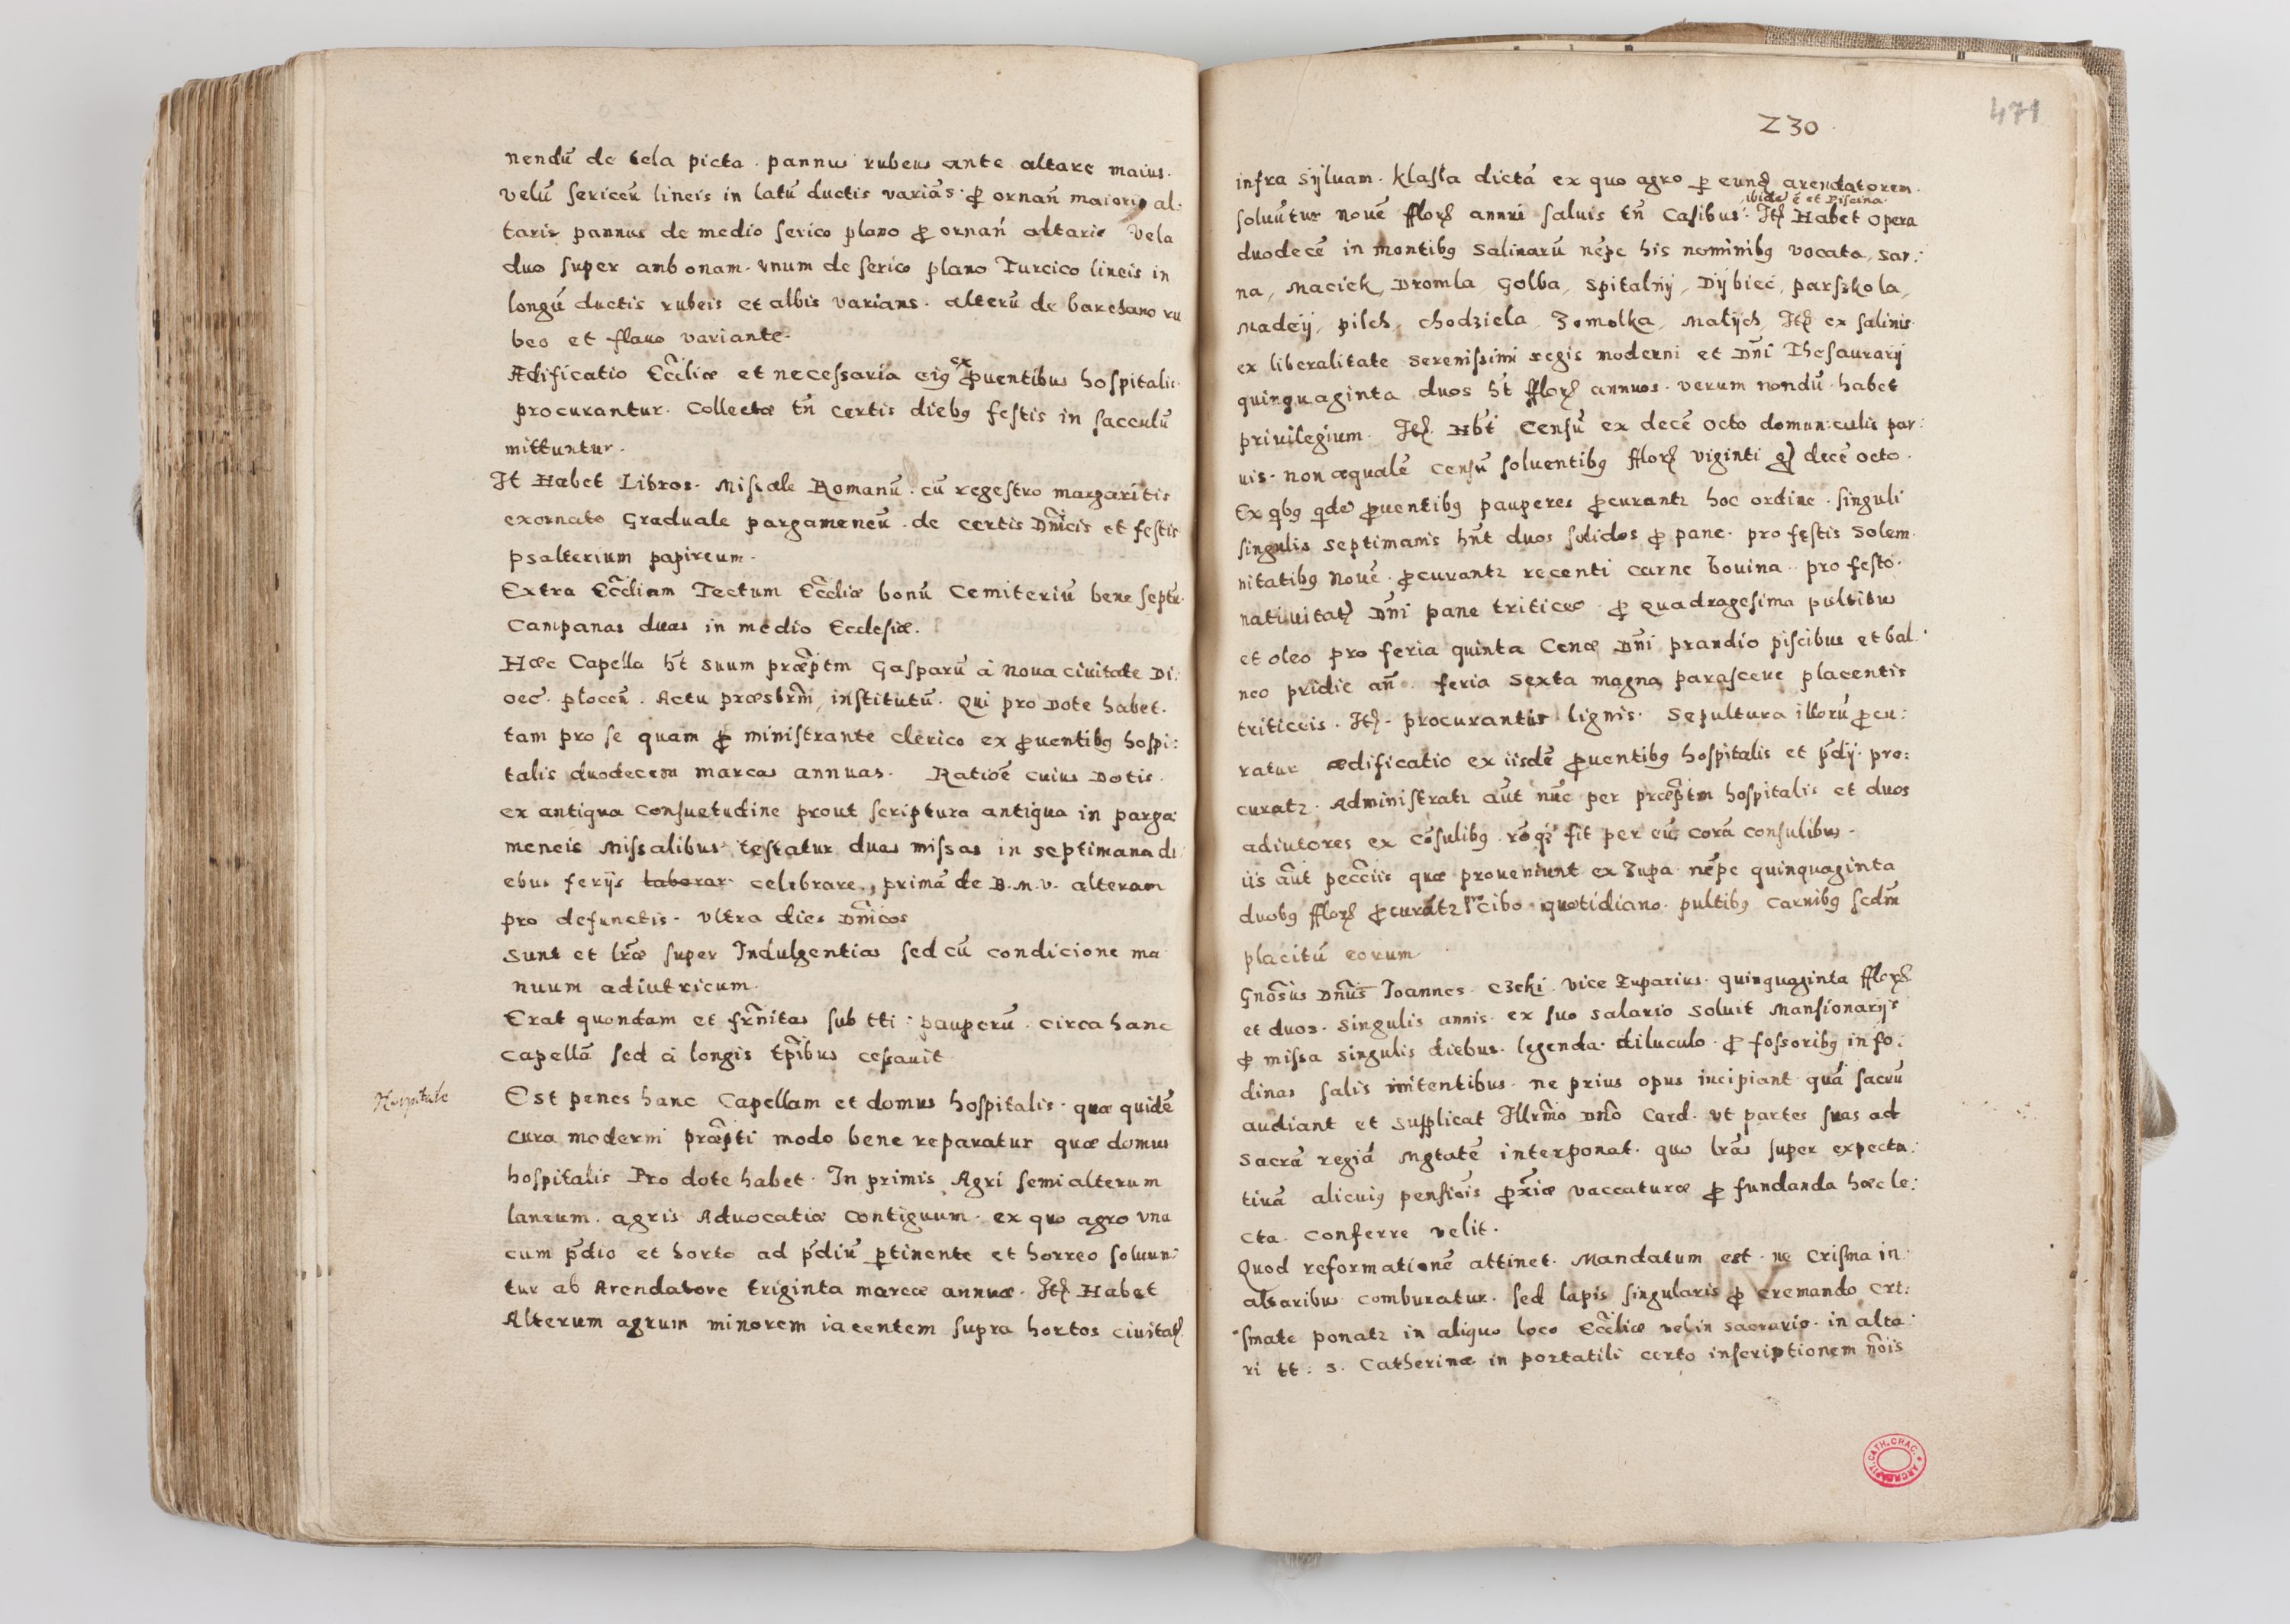 nendū de tela picta. pannus rubeus ante altare maius.
velū sericeū lineis in latū ductis variās. ꝓ ornań maioris al:
taris pannus de medio serico plano ꝓ ornań altaris Vela
duo super ambonam. vnum de serico plano Turcico lineis in
longū ductis rubeis et albis varians. alterū de barchano ru
beo et flauo variante.
Ædificatio Eccliæ et necessaria eiꝰ ex ꝓuentibus hospitalis.
procurantur. Collectæ tn̄ certis diebꝰ festis in sacculū
mittuntur.
It Habet Libros. Missale Romanū. cū regestro margaritis
exornato Graduale pargameneū. de certis Dn̄icis et festis
psalterium papireum.
Extra Eccliam Tectum Eccliæ bonū Cemiteriū bene septū.
Campanas duas in medio Ecclesiæ.
Hæc Capella ht̄ suum præp̄tm Gasparū à Noua ciuitate Di:
oec. plocen̄. Actu præsbr̄m, institutū. Qui pro Dote habet.
tam pro se quam ꝓ ministrante clerico ex ꝓuentibꝰ hospi:
talis duodecem marcas annuas. Ratiōe cuius Dotis.
ex antiqua Consuetudine prout scriptura antiqua in parga:
meneis Missalibus testatur duas missas in septimana di:
ebus ferijs laborar. celebrare, primā de B.M.V. alteram
pro defunctis. Vltra dies Dn̄icos
Sunt et lr̄æ super Indulgentias sed cū condicione ma
nuum adiutricum.
Erat quondam et fr̄nitas sub tti: pauperū. circa hanc
Capellā sed à longis tp̄ibus cessauit
Hospitale
Est penes hanc Capellam et domus hospitalis. quæ quidē
cura moderni præp̄ti modo bene reparatur quæ domus
hospitalis Pro dote habet. In primis Agri semialterum
laneum. agris Aduocatiæ Contiguum. ex quo agro vna
cum p̄dio et horto ad p̄diū ꝑtinente et horreo soluun:
tur ab Arendatore triginta marcæ annuæ. Itꝫ Habet
Alterum agrum minorem iacentem supra hortos ciuitatꝭ
230.
471
infra Syluam. Klasla dictā ex quo agro ꝑ eundꝫ arendatorem.
ibidē ē et Piscina.
soluūtur Nouē fflorꝫ annui saluis tn̄ Casibus. Itꝫ Habet Opera
duodecē in montibꝰ Salinarū nēpe his nominibꝰ vocata, Sar:
na, Maciek, Dromla, Golba, Spitalnÿ, Dÿbiec, parszkola,
Madeÿ, pilch, chodziela, Zomolka, Malÿch, Itꝫ ex salinis.
ex liberalitate Serenissimi regis moderni et Dn̄i Thesaurarij
quinquaginta duos ht̄ fflorꝫ annuos. verum nondū. habet
priuilegium. Itꝫ. Hb̄t Censū ex decē octo domunculis par:
uis. non æqualē Censū soluentibꝰ fflorꝫ viginti decē octo.
Ex qbꝰ qdē ꝓuentibꝰ pauperes ꝓcurantꝛ hoc ordine. singuli
singulis Septimanis hn̄t duos solidos ꝓ pane. pro festis Solem.
nitatibꝰ Nouē. ꝓcurantꝛ recenti Carne bouina.. pro festo.
natiuitatꝭ Dn̄i pane triticeo. ꝓ Quadragesima pultibus
et oleo pro feria quinta Cenæ Dn̄i prandio piscibus et bal:
neo pridie an̄. feria Sexta magna parasceue placentis
triticeis. Itꝫ. procurantur lignis. Sepultura illorū ꝓcu:
ratur ædificatio ex iisdē ꝓuentibꝰ hospitalis et p̄dij. pro:
curatꝛ. Administratꝛ aūt nūc per præp̄tm hospitalis et duos
adiutores ex cōsulibꝰ. rōqꝫ fit per eū corā consulibus.
iis aūt pecc̄iis quæ proueniunt ex Zupa. nēpe quinquaginta
duobꝰ fflorꝫ ꝓcurātꝛ pro cibo quotidiano. pultibꝰ Carnibꝰ scdm̄
placitū eorum
Gnōsus Dn̄us Joannes. Czeki. Vice Zuparius. quinquaginta fflorꝫ
et duos. Singulis annis. ex suo Salario Soluit Mansionarijs
ꝓ missa Singulis diebus. legenda. diluculo. ꝓ fossoribꝰ in fo:
dinas salis initentibus. ne prius opus incipiant quā sacrū
audiant et Supplicat Illr̄mo Dn̄o Card. vt partes suas ad
Sacrā regiā Mgtatē interponat. quo lr̄as super expecta:
tiuā alicuiꝰ pensiōis ꝓxiæ vaccaturæ ꝓ fundanda hæc le:
cta. Conferre velit.
Quod reformationē attinet. Mandatum est. ne Crisma in:
altaribus comburatur. sed lapis singularis ꝓ Cremando Cri:
smate ponatꝛ in aliquo loco Eccliæ vel in sacrario. in alta:
ri tt: S. Catherinæ in portatili certo inscriptionem nōis
ARCH. CAPIT. CATH. CRAC.